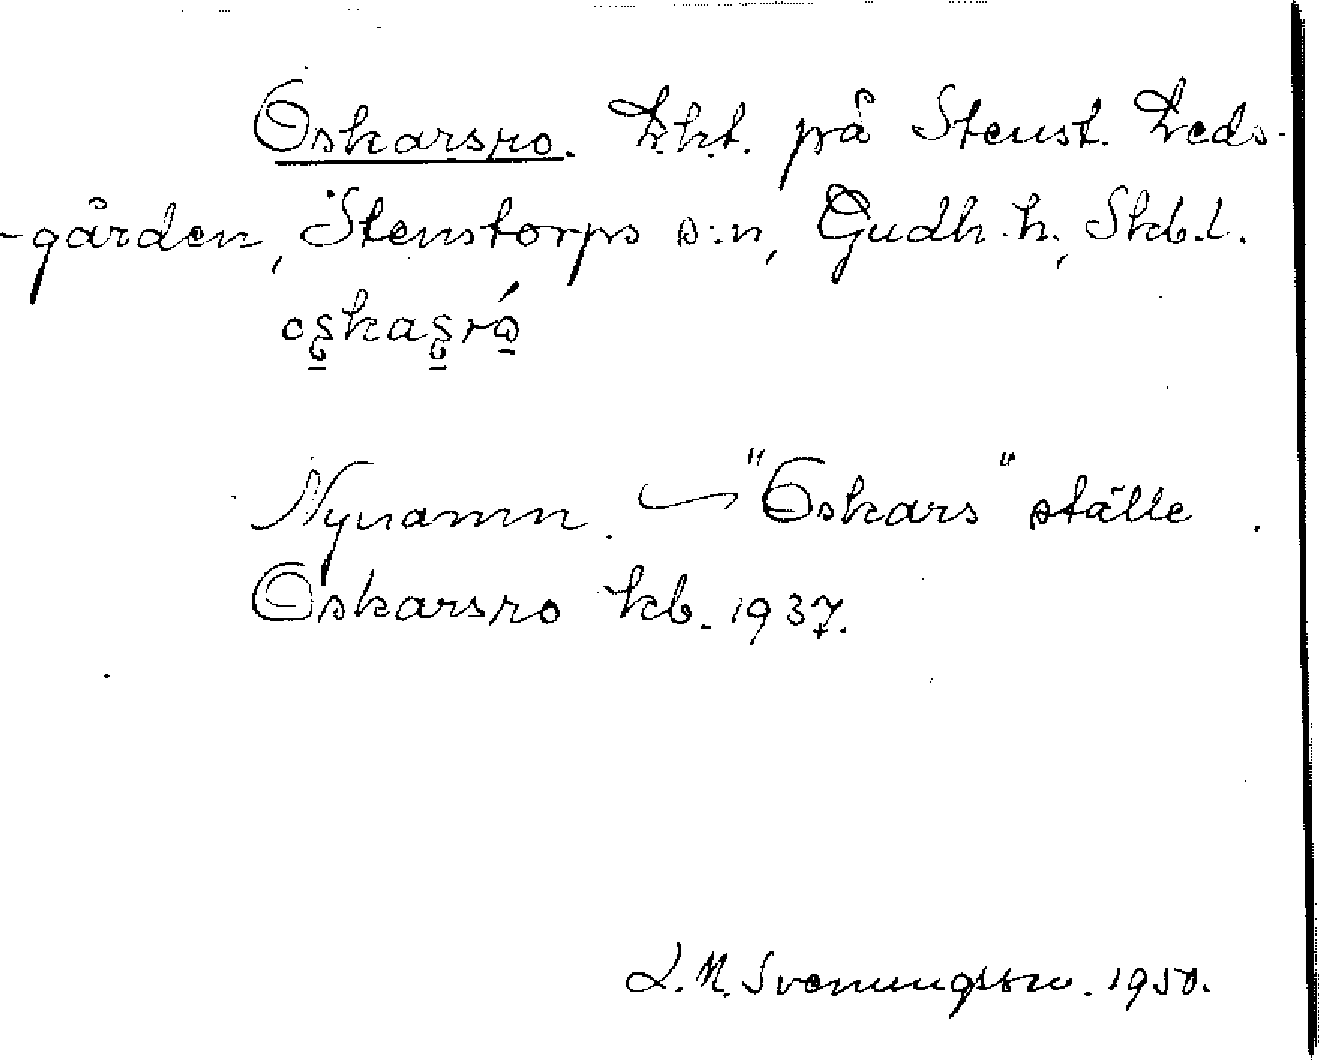 Oskarsro. Lht. på Stenst. Leds-
-gården, Stenstorps s:n, Gudh. h., Skb.l.
oskasró
Nynamn. "Oskars" ställe.
Oskarsro kb. 1937.
L.N. Svenungsson. 1950.